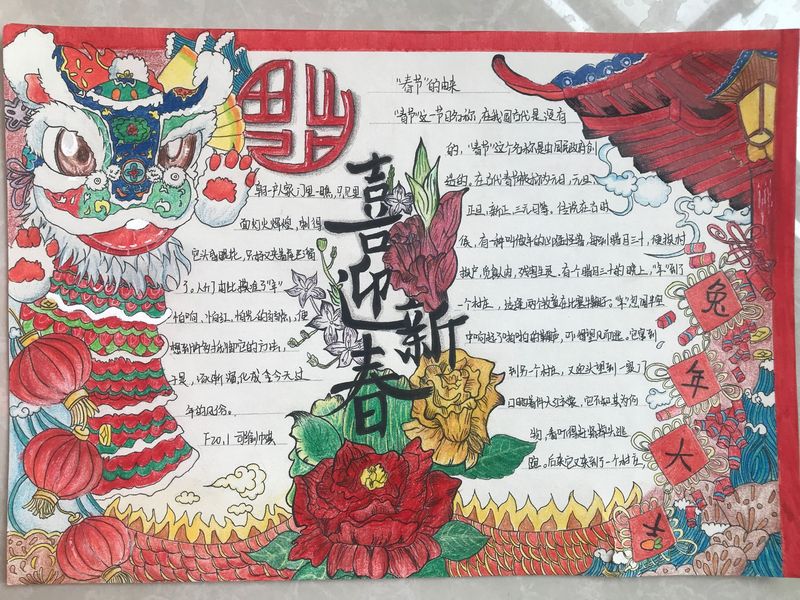 福
喜迎新春
"春节"的由来
"春节"这一节日名称，在我国古代是没有
的，"春节"这个名称是由国民政府创
造的。在古代春节被称为元日，元旦
正旦，新正，三元日等，传说在古时
候，有一种叫做年的凶猛怪兽，每到腊月三十，便挨村
挨户，觅食人肉，残害生灵。有一个腊月三十的晚上，"年"到了
一个村庄，适逢两个牧童在比赛牛鞭子。"年"忽闻半空
中响起了啪啪的鞭声，吓得望风而逃。它窜到
到另一个村庄，又迎头望到一家门
口晒着件大红衣裳，它不知其为何
物，吓得赶紧掉头逃
跑。后来它又来到了一个村庄
朝一户人家门里一瞧，只见里
面灯火辉煌，刺得
它头昏眼花，只好又夹着尾巴溜
了。人们由此摸准了"年"
怕响、怕红、怕光的弱点，便
想到许多抵御它的方法，
于是，逐渐演化成为今天过
年的风俗。
兔
年
大
吉